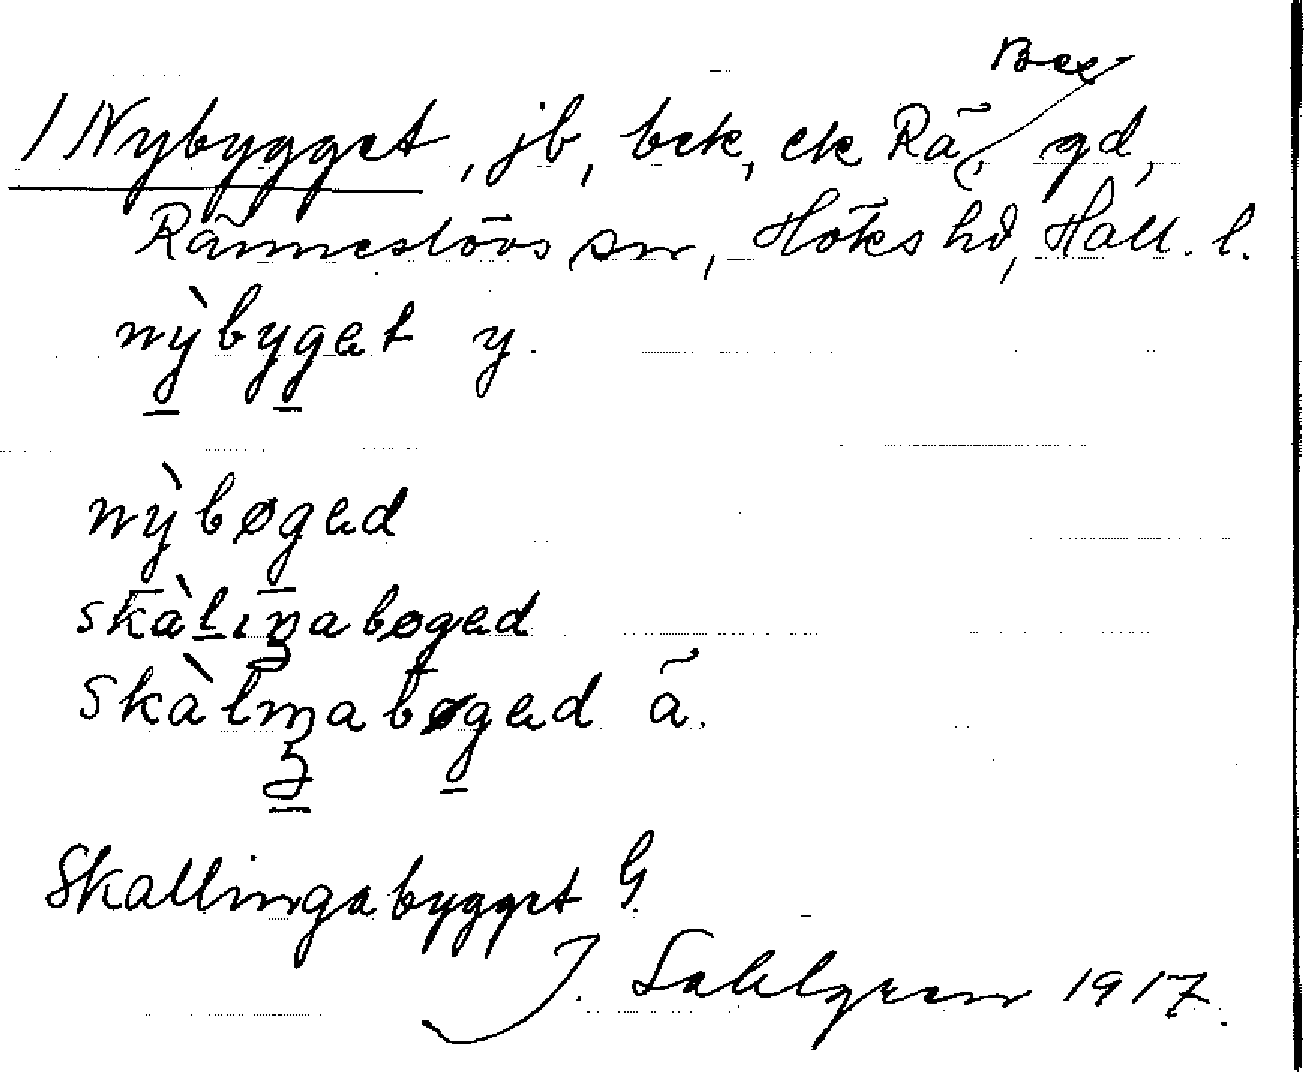 1 Nybygget, jb, bek, ek Rä, gd,
Ränneslövs sn, Höks hd, Hall. l.
nỳbyget y.
nỳbøged
skàliŋabøged
skàlŋabøged ä.
Skallingabygget G.
J. Sahlgren 1917.